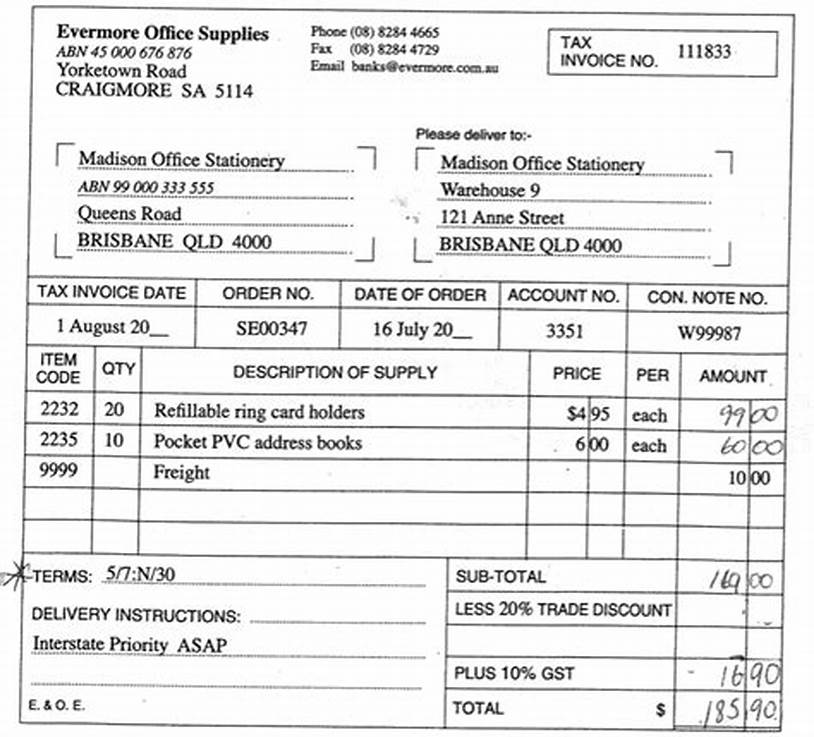 Evermore Office Supplies
ABN 45 000 676 876
Yorketown Road
CRAIGMORE SA 5114
Phone (08) 8284 4665
Fax (08) 8284 4729
Email banks@evermore.com.au
TAX
INVOICE NO. 111833
Madison Office Stationery
ABN 99 000 333 555
Queens Road
BRISBANE QLD 4000
Please deliver to:-
Madison Office Stationery
Warehouse 9
121 Anne Street
BRISBANE QLD 4000
TAX INVOICE DATE ORDER NO. DATE OF ORDER ACCOUNT NO. CON. NOTE NO.
1 August 20__ SE00347 16 July 20__ 3351 W99987
ITEM CODE QTY DESCRIPTION OF SUPPLY PRICE PER AMOUNT
2232 20 Refillable ring card holders $4 95 each 99 00
2235 10 Pocket PVC address books 6 00 each 60 00
9999 Freight 10 00
TERMS: 5/7:N/30
DELIVERY INSTRUCTIONS:
Interstate Priority ASAP
E. & O. E.
SUB-TOTAL 169 00
LESS 20% TRADE DISCOUNT
PLUS 10% GST 16 90
TOTAL $ 185 90